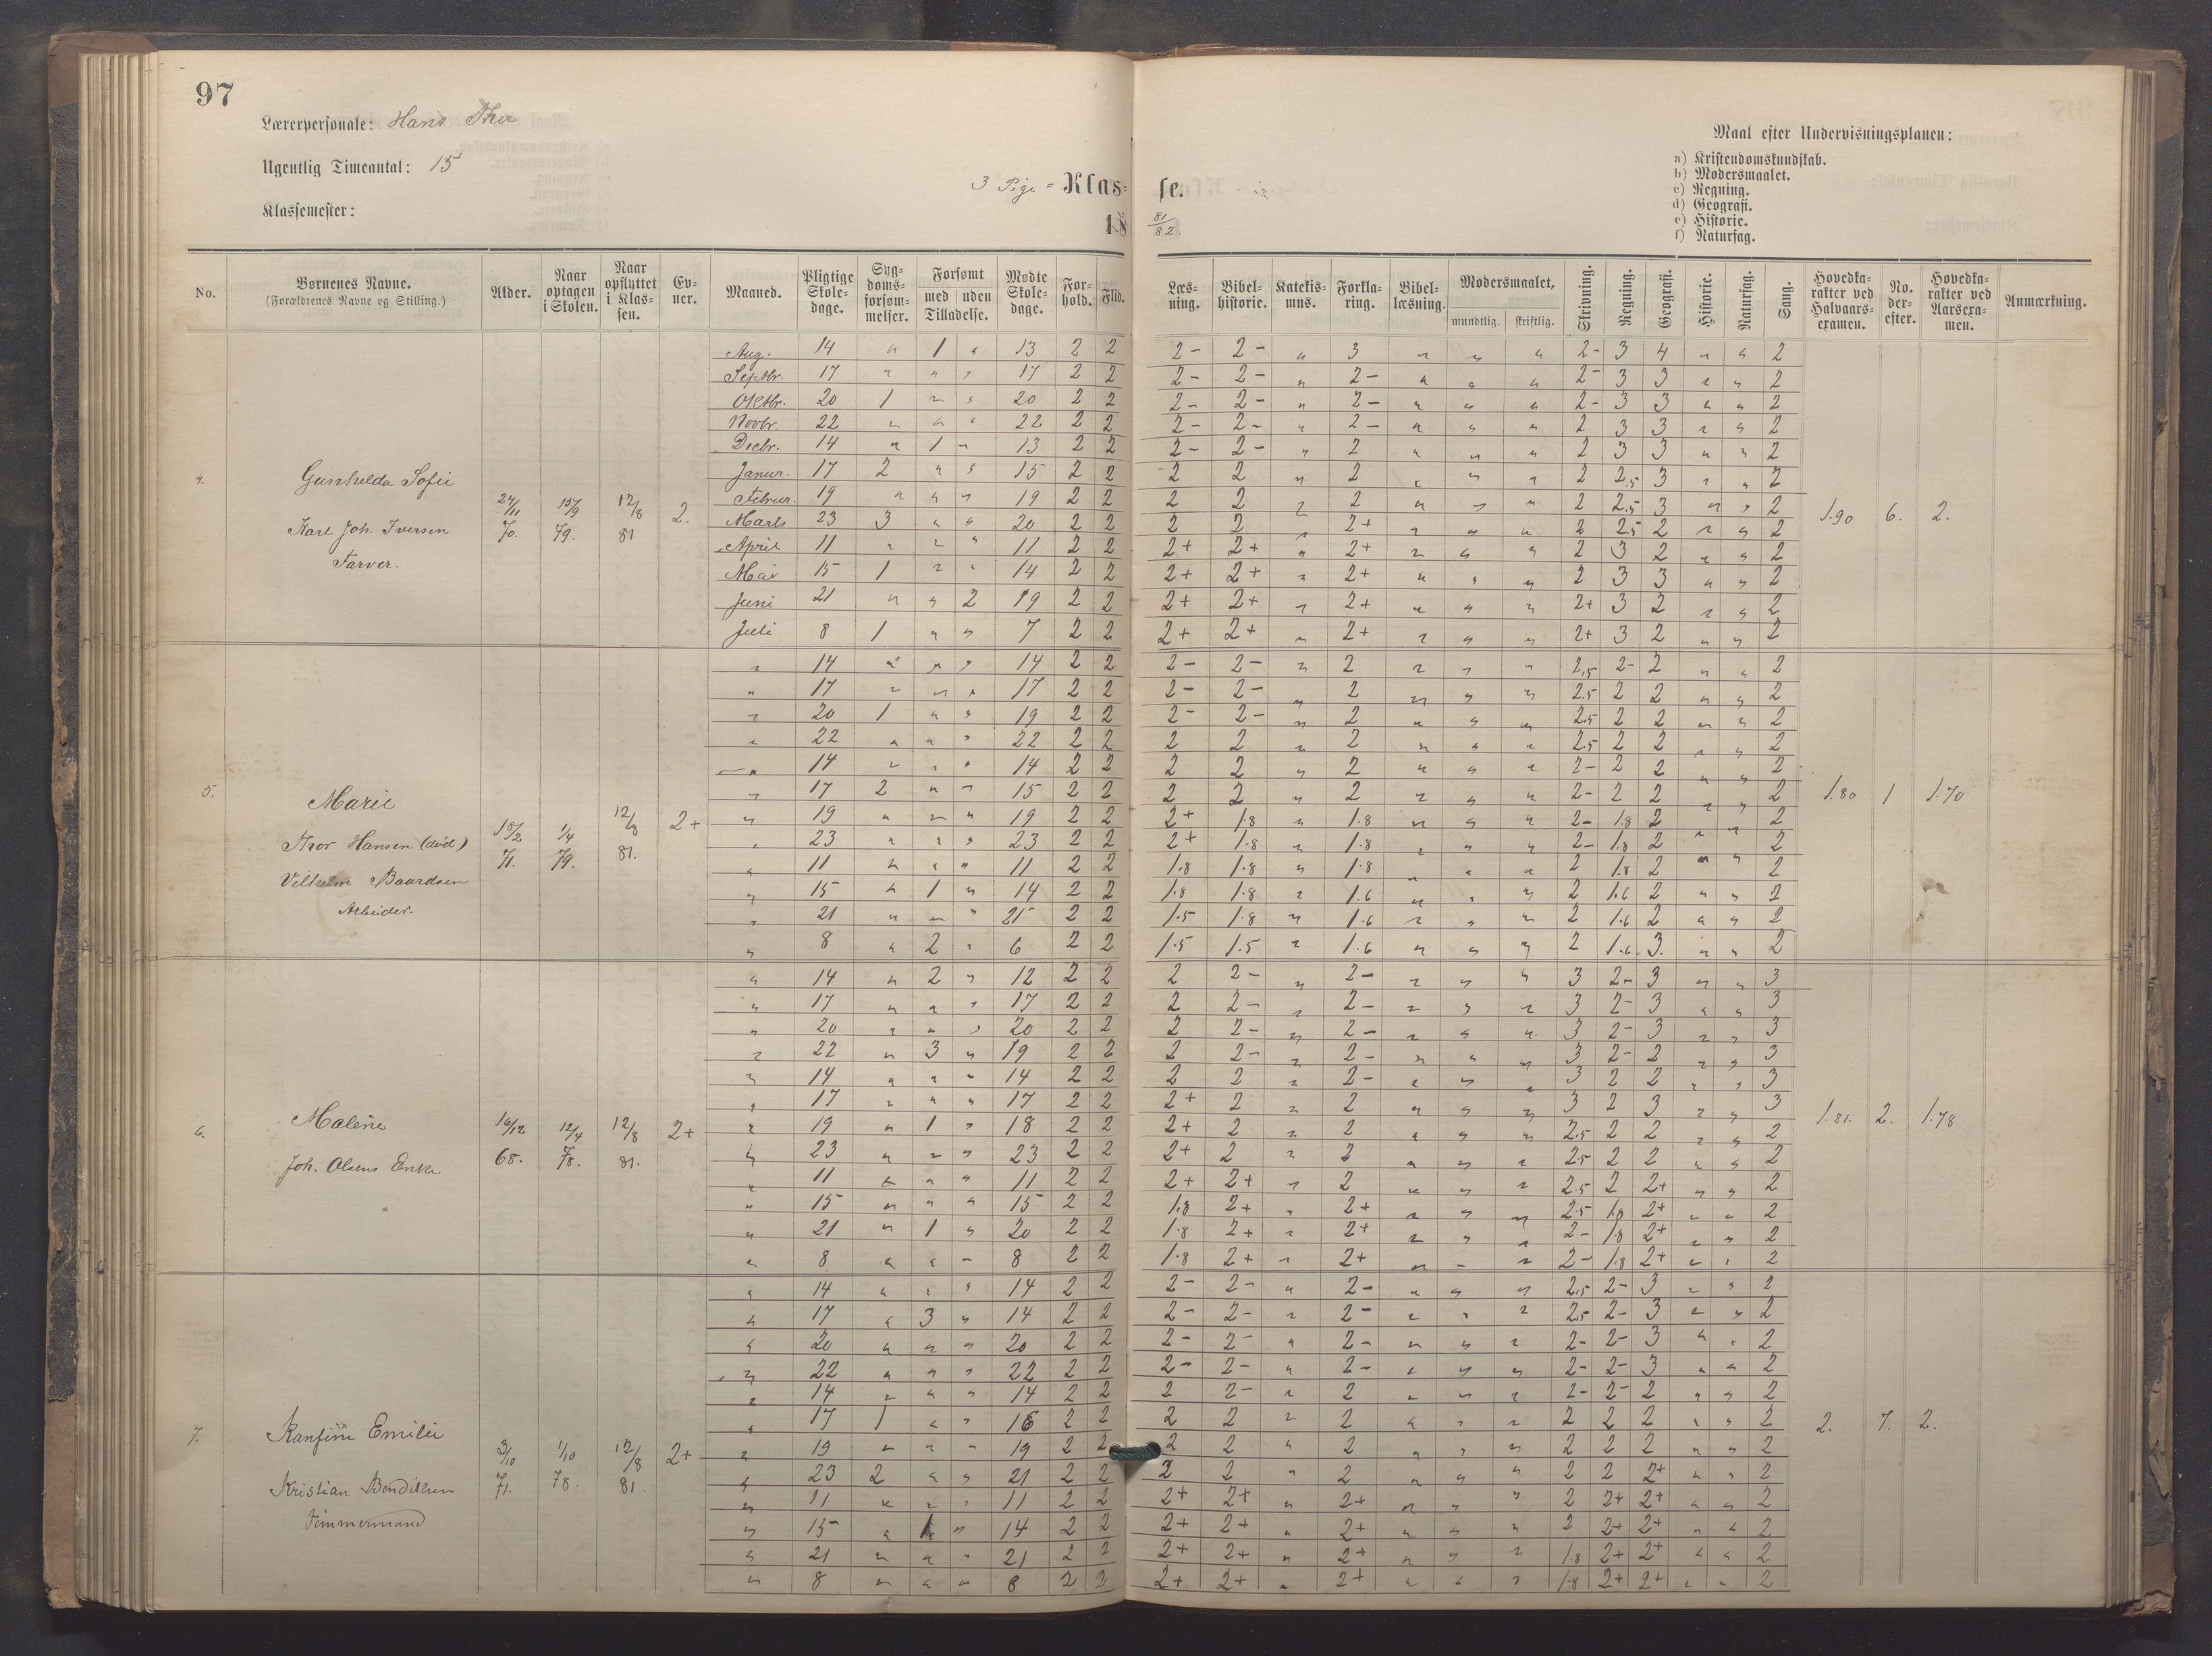 97
Lærerpersonale: Hans
Ugentlig Timeantal: 15
Klassemester:
3 Pige = Klas= se.
18 81/82.
Maal efter Undervisningsplanen:
a) Kristendomskundskab.
b) Modersmaalet.
c) Regning.
d) Geografi.
e) Historie.
f) Naturfag.
No. Børnenes Navne. (Forældrenes Navne og Stilling.) Alder. Naar optagen i Skolen. Naar opflyttet i Klassen. Evner. Maaned. Pligtige Skoledage. Sygdomsforsømmelser. Forsømt med uden Tilladelse. Mødte Skoledage. Forhold. Flid. Læsning. Bibelhistorie. Katekismus. Forklaring. Bibellæsning. Modersmaalet, mundtlig. skriftlig. Skrivning. Regning. Geografi. Historie. Naturfag. Sang. Hovedkarakter ved Halvaarsexamen. No. derefter. Hovedkarakter ved Aarsexamen. Anmærkning.
4. Gunhelda Sofie
Karl Joh. Iversen
Farver.
24/11 70. 15/9 79. 12/8 81 2.
Aug. 14 " 1 " 13 2 2 2- 2- " 3 " " " 2- 3 4 " " 2
Septbr. 17 " " " 17 2 2 2- 2- " 2- " " " 2- 3 3 " " 2
Oktbr. 20 1 " " 20 2 2 2- 2- " 2- " " " 2- 3 3 " " 2
Novbr. 22 " " " 22 2 2 2- 2- " 2- " " " 2 3 3 " " 2
Decbr. 14 " 1 " 13 2 2 2- 2- " 2 " " " 2 3 3 " " 2
Januar. 17 2 " " 15 2 2 2 2 " 2 " " " 2 2.5 3 " " 2
Februar. 19 " " " 19 2 2 2 2 " 2 " " " 2 2.5 3 " " 2
Marts 23 3 " " 20 2 2 2 2 " 2+ " " " 2 2.5 2 " " 2
April 11 " " " 11 2 2 2+ 2+ " 2+ " " " 2 3 2 " " 2
Mai 15 1 " " 14 2 2 2+ 2+ " 2+ " " " 2 3 3 " " 2
Juni 21 " " 2 19 2 2 2+ 2+ " 2+ " " " 2+ 3 2 " " 2
Juli 8 1 " " 7 2 2 2+ 2+ " 2+ " " " 2+ 3 2 " " 2
1.90 6. 2.
5. Marie
Thor Hansen (død)
Vilhelm Baardsen
Arbeider.
18/2 71. 1/4 79. 12/8 81. 2+
" 14 " " " 14 2 2 2- 2- " 2 " " " 2.5 2- 2 " " 2
" 17 " " " 17 2 2 2- 2- " 2 " " " 2.5 2 2 " " 2
" 20 1 " " 19 2 2 2- 2- " 2 " " " 2.5 2 2 " " 2
" 22 " " " 22 2 2 2 2 " 2 " " " 2.5 2 2 " " 2
" 14 " " " 14 2 2 2 2 " 2 " " " 2- 2 2 " " 2
" 17 2 " " 15 2 2 2 2 " 2 " " " 2- 2 2 " " 2
" 19 " " " 19 2 2 2+ 1.8 " 1.8 " " " 2- 1.8 2 " " 2
" 23 " " " 23 2 2 2+ 1.8 " 1.8 " " " 2- 1.8 2 " " 2
" 11 " " " 11 2 2 1.8 1.8 " 1.8 " " " 2 1.8 2 " " 2
" 15 " 1 " 14 2 2 1.8 1.8 " 1.6 " " " 2 1.6 2 " " 2
" 21 " " " 21 2 2 1.5 1.8 " 1.6 " " " 2 1.6 2 " " 2
" 8 " 2 " 6 2 2 1.5 1.5 " 1.6 " " " 2 1.6 3. " " 2
1.80 1 1.70
6. Malene
Joh. Olsens Enke
16/12 68. 12/4 78. 12/8 81. 2+
" 14 " 2 " 12 2 2 2 2- " 2- " " " 3 2- 3 " " 3
" 17 " " " 17 2 2 2 2- " 2- " " " 3 2- 3 " " 3
" 20 " " " 20 2 2 2 2- " 2- " " " 3 2- 3 " " 3
" 22 " 3 " 19 2 2 2 2- " 2- " " " 3 2- 2 " " 3
" 14 " " " 14 2 2 2 2 " 2- " " " 3 2 2 " " 3
" 17 " " " 17 2 2 2+ 2 " 2 " " " 3 2 3 " " 3
" 19 " 1 " 18 2 2 2+ 2 " 2 " " " 2.5 2 2 " " 2
" 23 " " " 23 2 2 2+ 2 " 2 " " " 2.5 2 2 " " 2
" 11 " " " 11 2 2 2+ 2+ " 2 " " " 2.5 2 2+ " " 2
" 15 " " " 15 2 2 1.8 2+ " 2+ " " " 2.5 1.8 2+ " " 2
" 21 " 1 " 20 2 2 1.8 2+ " 2+ " " " 2- 1.8 2+ " " 2
" 8 " " " 8 2 2 1.8 2+ " 2+ " " " 2- 1.8 2+ " " 2
1.81. 2. 1.78
7. Emilie
Kristian Bendiksen
Timmermand
3/10 71. 1/10 78. 12/8 81. 2+
" 14 " " " 14 2 2 2- 2- " 2- " " " 2.5 2- 3 " " 2
" 17 " 3 " 14 2 2 2- 2- " 2- " " " 2.5 2- 3 " " 2
" 20 " " " 20 2 2 2- 2- " 2- " " " 2- 2- 3 " " 2
" 22 " " " 22 2 2 2- 2- " 2- " " " 2- 2- 3 " " 2
" 14 " " " 14 2 2 2 2- " 2 " " " 2- 2- 2 " " 2
" 17 1 " " 16 2 2 2 2 " 2 " " " 2 2 2 " " 2
" 19 " " " 19 2 2 2 2 " 2 " " " 2 2 2 " " 2
" 23 2 " " 21 2 2 2 2 " 2 " " " 2 2 2+ " " 2
" 11 " " " 11 2 2 2+ 2+ " 2+ " " " 2 2+ 2+ " " 2
" 15 " 1 " 14 2 2 2+ 2+ " 2+ " " " 2 2+ 2+ " " 2
" 21 " " " 21 2 2 2+ 2+ " 2+ " " " 1.8 2+ 2+ " " 2
" 8 " " " 8 2 2 2+ 2+ " 2+ " " " 1.8 2+ 2+ " " 2
2. 7. 2.